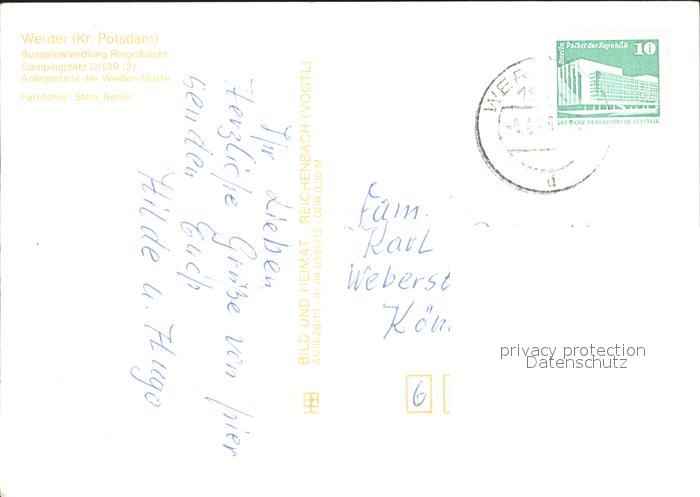 Werder (Kr. Potsdam)
Bungalowsiedlung Riegelbucht
Campingplatz D/139 (2)
Anlegestelle der Weißen Flotte
Farbfotos: Steri, Berlin
Ihr Lieben
Herzliche Grüße von hier
senden Euch
Hilde u. Hugo
BILD UND HEIMAT · REICHENBACH (VOGTL)
A1/III/26/13 · 01 04 0596/12 · DDR 0,20 M
Berlin Palast der Republik
10
DEUTSCHE DEMOKRATISCHE REPUBLIK
WER
d
Fam.
Karl
Weberst
Kön
6
privacy protection
Datenschutz